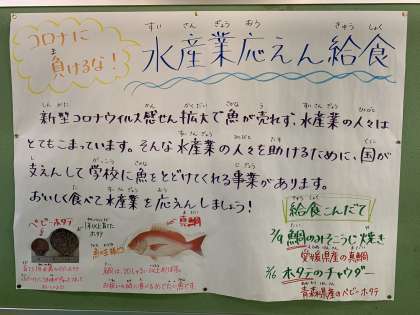 コロナに
負けるな!
水産業応えん給食
新型コロナウイルス感せん拡大で魚が売れず、水産業の人々は
とてもこまっています。そんな水産業の人々を助けるために、国が
支えんして学校に魚をとどけてくれる事業があります。
おいしく食べて水産業を応えんしましょう!
ベビーホタテ
真鯛
給食こんだて
2/9 鯛のみそこうじ焼き
愛媛県産の真鯛
2/16 ホタテのチャウダー
青森県産のベビーホタテ